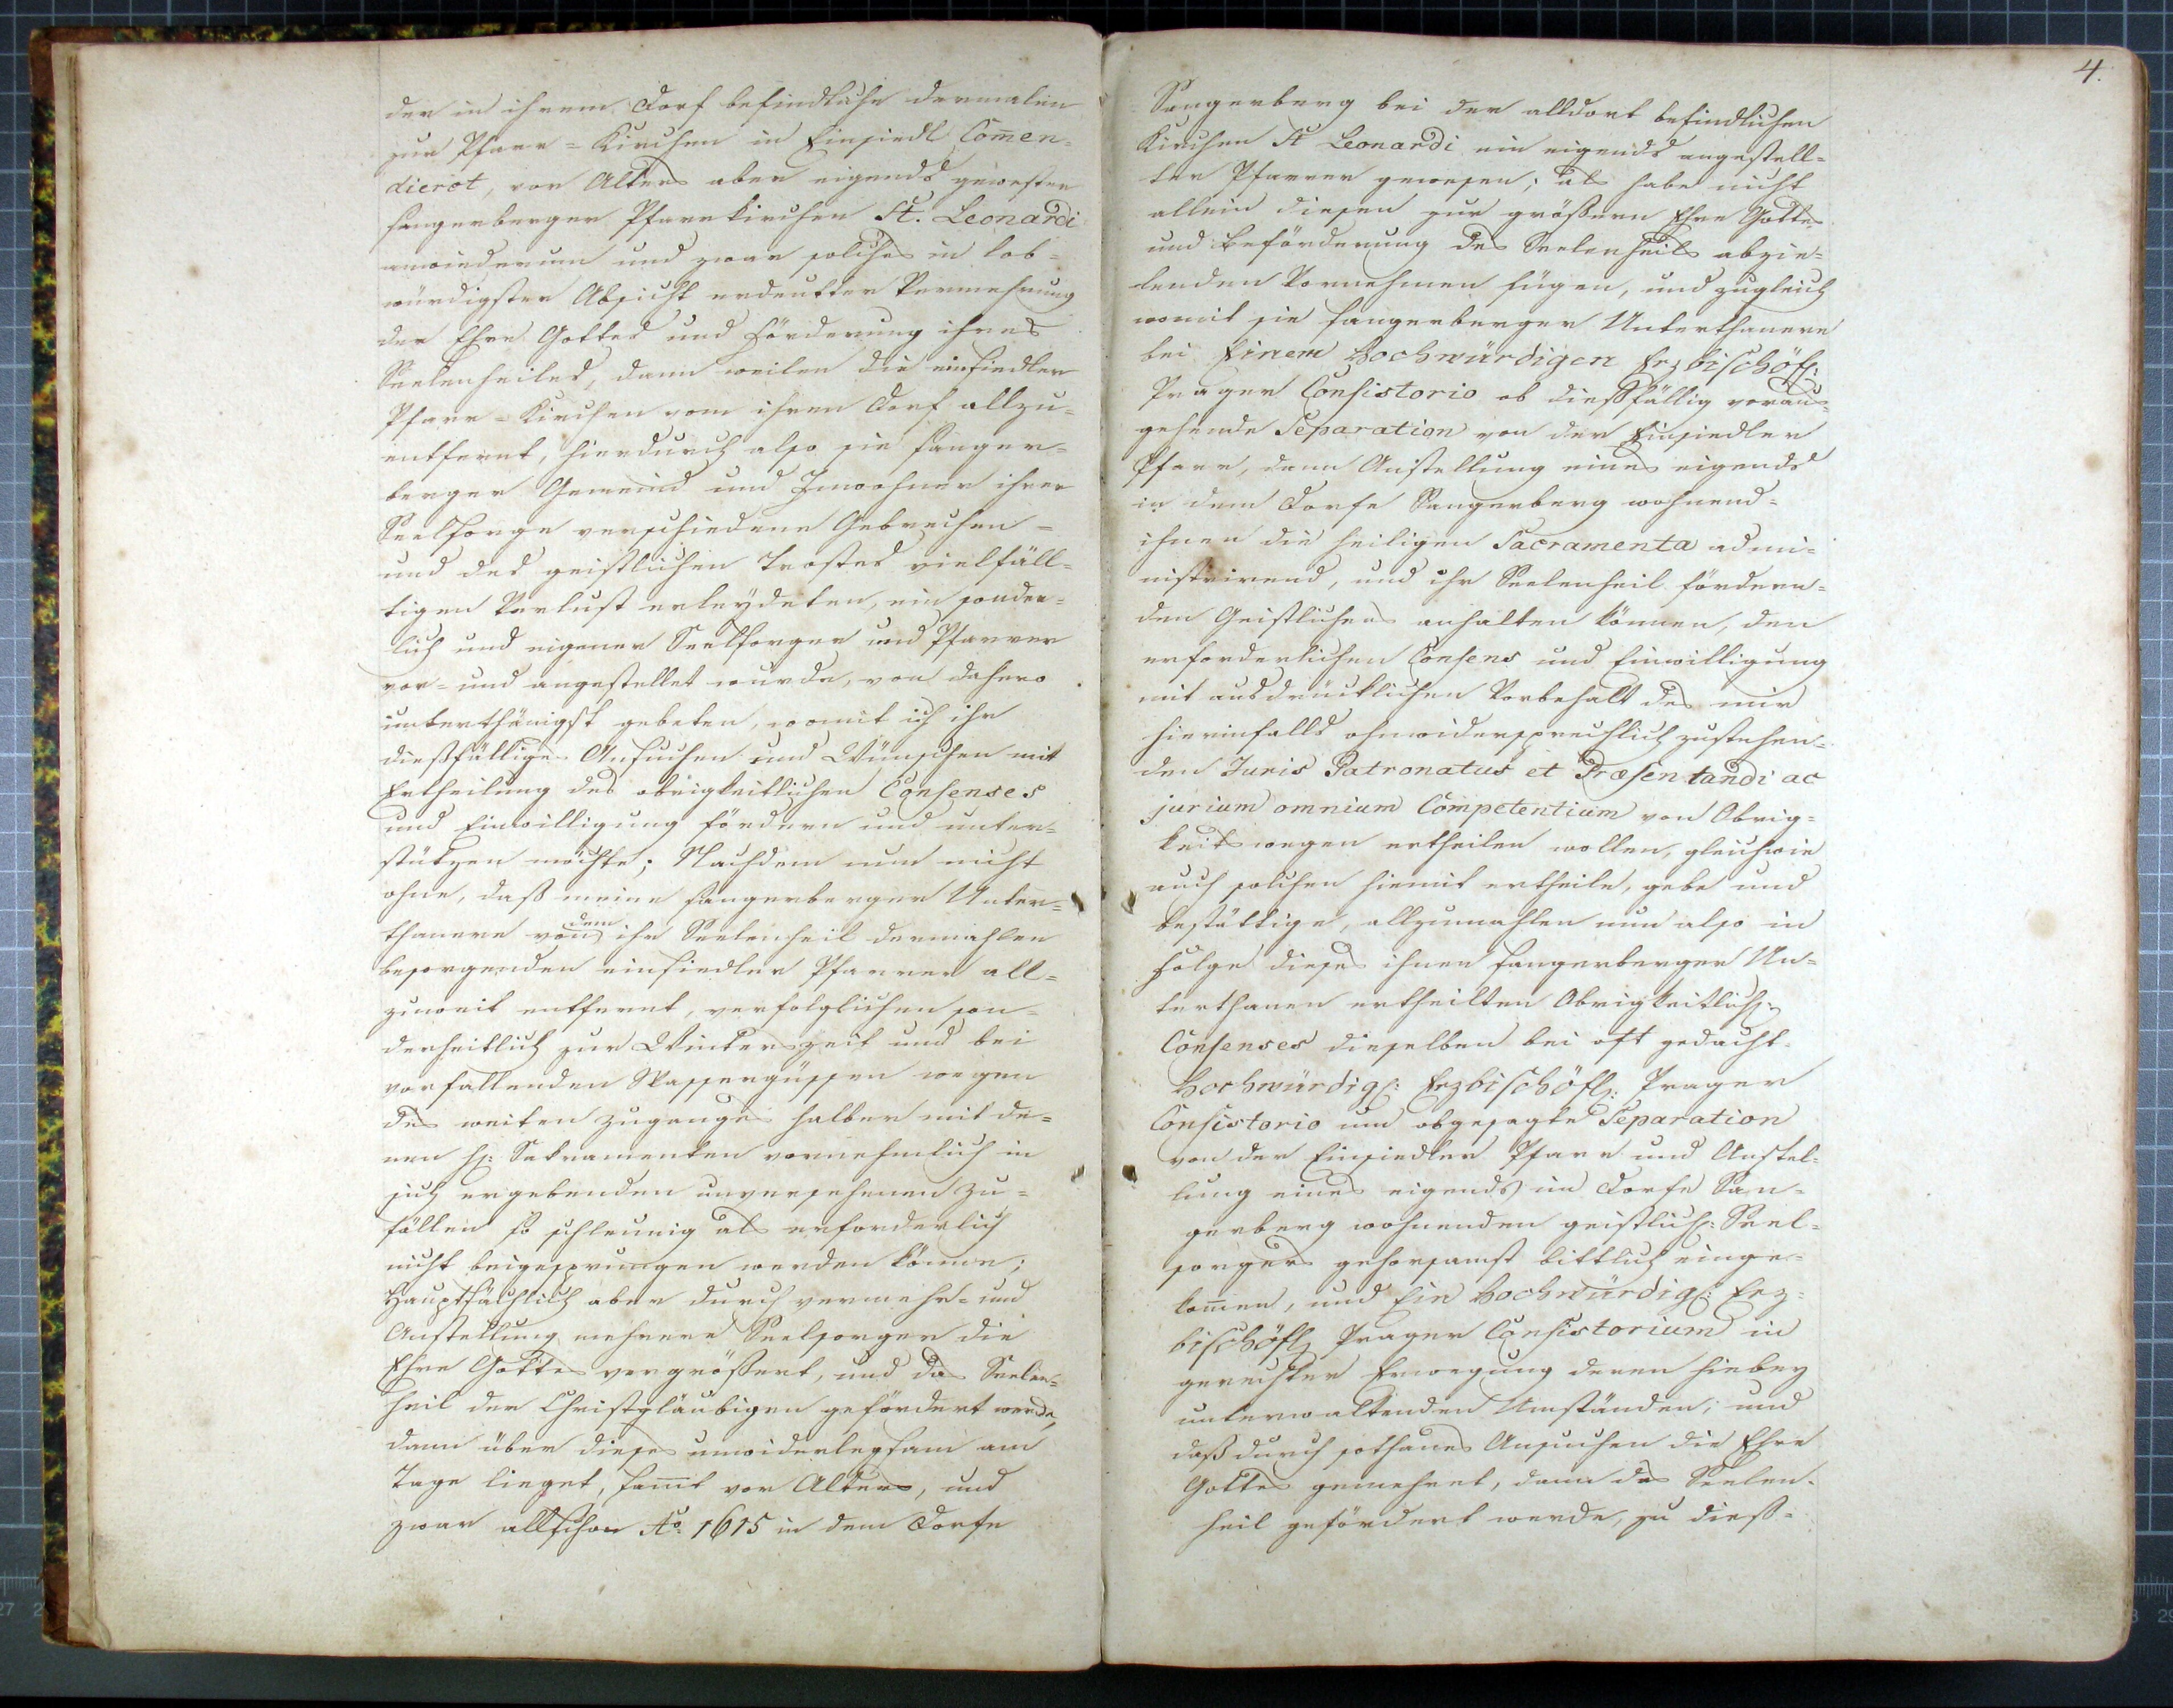 der in ihrem Dorf befindliche dermalen
zur Pfarr-Kirchen in Einsiedl Com̄en-
dierct, vor Alters aber eigends gewesten
sangerberger Pfarrkirchen St. Leonardi
anwiederum und zwar solches in lob-
würdigster Absicht erdeuter Vermehrung
der Ehre Gottes und Förderung ihres
Seelenheiles, dann weilen die einsiedler
Pfarr-Kirchen vom ihren Dorf allzu-
entfernt, hierdurch also sie sanger-
berger Gemeind und Innwohner ihrer
Seelsorge verschiedene Gebrechen-
und des geistlichen Trostes vielfäll-
tigen Verlust erleydeten, ein sonder-
lich und eigener Seelsorger und Pfarrer
vor- und angestellet wurde, von dahero
unterthänigst gebeten, womit ich ihr
dießfälliges Ansuchen und Wünschen mit
Ertheilung des obrigkeitlichen Consenses
und Einwilligung fördern und unter-
stützen möchte; Nachdem nun nicht
ohne, daß meine sangerberger Unter-
thanere von dem ihr Seelenheil dermahlen
besorgenden einsiedler Pfarrer all-
zuweit entfernt, verfolglichen son-
derheitlich zur Winterszeit und bei
vorfallenden Wassergüssen wegen
des weiten Zugangs halber mit de-
nen h: Sakramenten vornehmlich in
sich ergebenden unversehenen Zu-
fällen so schleunig als erforderlich
nicht beigesprungen werden könne;
Hauptsächlich aber durch vermehr- und
Anstellung mehrere Seelsorger die
Ehre Gottes vergrößert, und das Seelen-
heil der Christgläubigen gefördert werde,
dann über dieses unwiderlegsam am
Tage lieget, sam̄t vor Alters, und
zwar allschon Ao. 1615 in dem Dorfe
4.
Sangerberg bei der alldort befindlichen
Kirchen St Leonardi ein eigends angestell-
ter Pfarrer gewesen; als habe nicht
allein diesen zur größern Ehre Gottes
und Beförderung des Seelenheils abzie-
lenden Vornehmen fügen, und zugleich
womit sie sangerberger Unterthanere
bei Einem Hochwürdigen Erzbischöfl:
Prager Consistorio ob dießfällig voraus-
gehende Separation von der Einsiedler
Pfarr, dann Anstellung eines eigends
in dem Dorfe Sangerberg wohnend-
ihnen die heiligen Sacramenta admi-
nistrirend, und ihr Seelenheil fördern-
den Geistlichens anhalten können, den
erforderlichen Consens und Einwilligung
mit ausdrücklichen Vorbehalt des mir
hierinfalls ohnwidersprechlich zustehen-
den Juris Patronatus et Præsentandi ac
jurium omnium Competentium von Obrig-
keits wegen ertheilen wollen, gleichwie
auch solchen hiemit ertheile, gebe und
bestättige, allzumahlen nun also in
Folge dieses ihnen sangerberger Un-
terthanen ertheilten Obrigkeitlich:
Consenses dieselben bei oft gedacht.
Hochwürdig: Erzbischöfl: Prager
Consistorio um obgesagte Separation
von der Einsiedler Pfarr und Anstel-
lung eines eigends im Dorfe San-
gerberg wohnenden geistlich: Seel-
sorgers gehorsamst bittlich einge-
kom̄en, und Ein Hochwürdig: Erz-
bischöfl: Prager Consistorium in
gerechter Erwegung deren hiebey
unterwaltenden Umständen; und
daß durch sothanes Ansuchen die Ehre
Gottes gemehret, dann das Seelen-
heil gefördert werde, zu dieß-